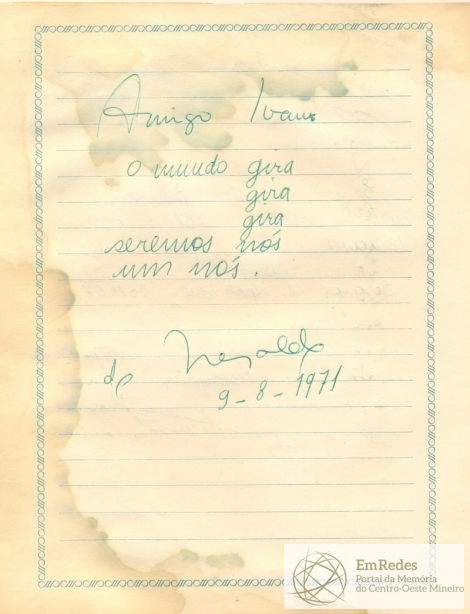 Amigo Ivan
O mundo gira
gira
gira
seremos nós
um nós.
do
9-8-1971
EmRedes
Portal da Memória
do Centro-Oeste Mineiro